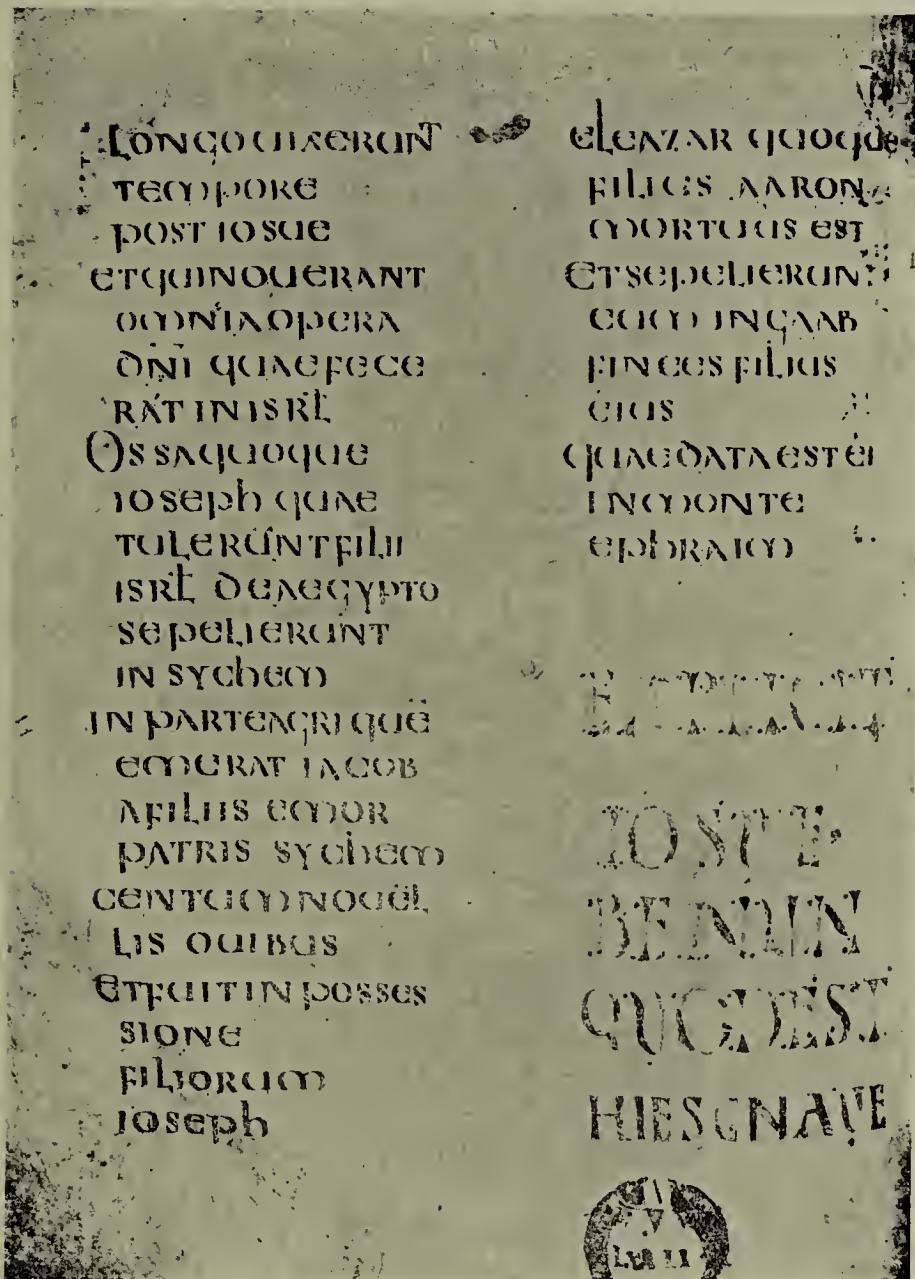 LONGO UIXERUNT
TEMPORE
POST IOSUE
ET QUI NOUERANT
OMNIA OPERA
DNI QUAE FECE
RAT IN ISRL
OSSA QUOQUE
IOSEPH QUAE
TULERUNT FILII
ISRL DE AEGYPTO
SEPELIERUNT
IN SYCHEM
IN PARTE AGRI QUĒ
EMERAT IACOB
A FILIIS EMOR
PATRIS SYCHEM
CENTUM NOUEL
LIS OUIBUS
ET FUIT IN POSSES
SIONE
FILIORUM
IOSEPH
ELEAZAR QUOQUE
FILIUS AARON
MORTUUS EST
ET SEPELIERUNT
EUM IN GAAB
FINEES FILIUS
EIUS
QUAE DATA EST EI
IN MONTE
EPHRAIM
IOSUE
BENNUN
QUI